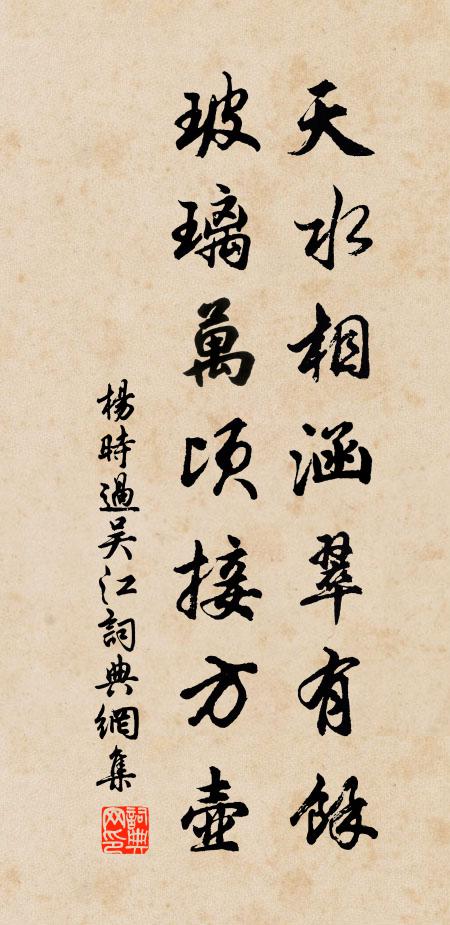 天水相涵翠有餘
玻璃萬頃接方壺
楊時過吳江詞典網集
詞典網印